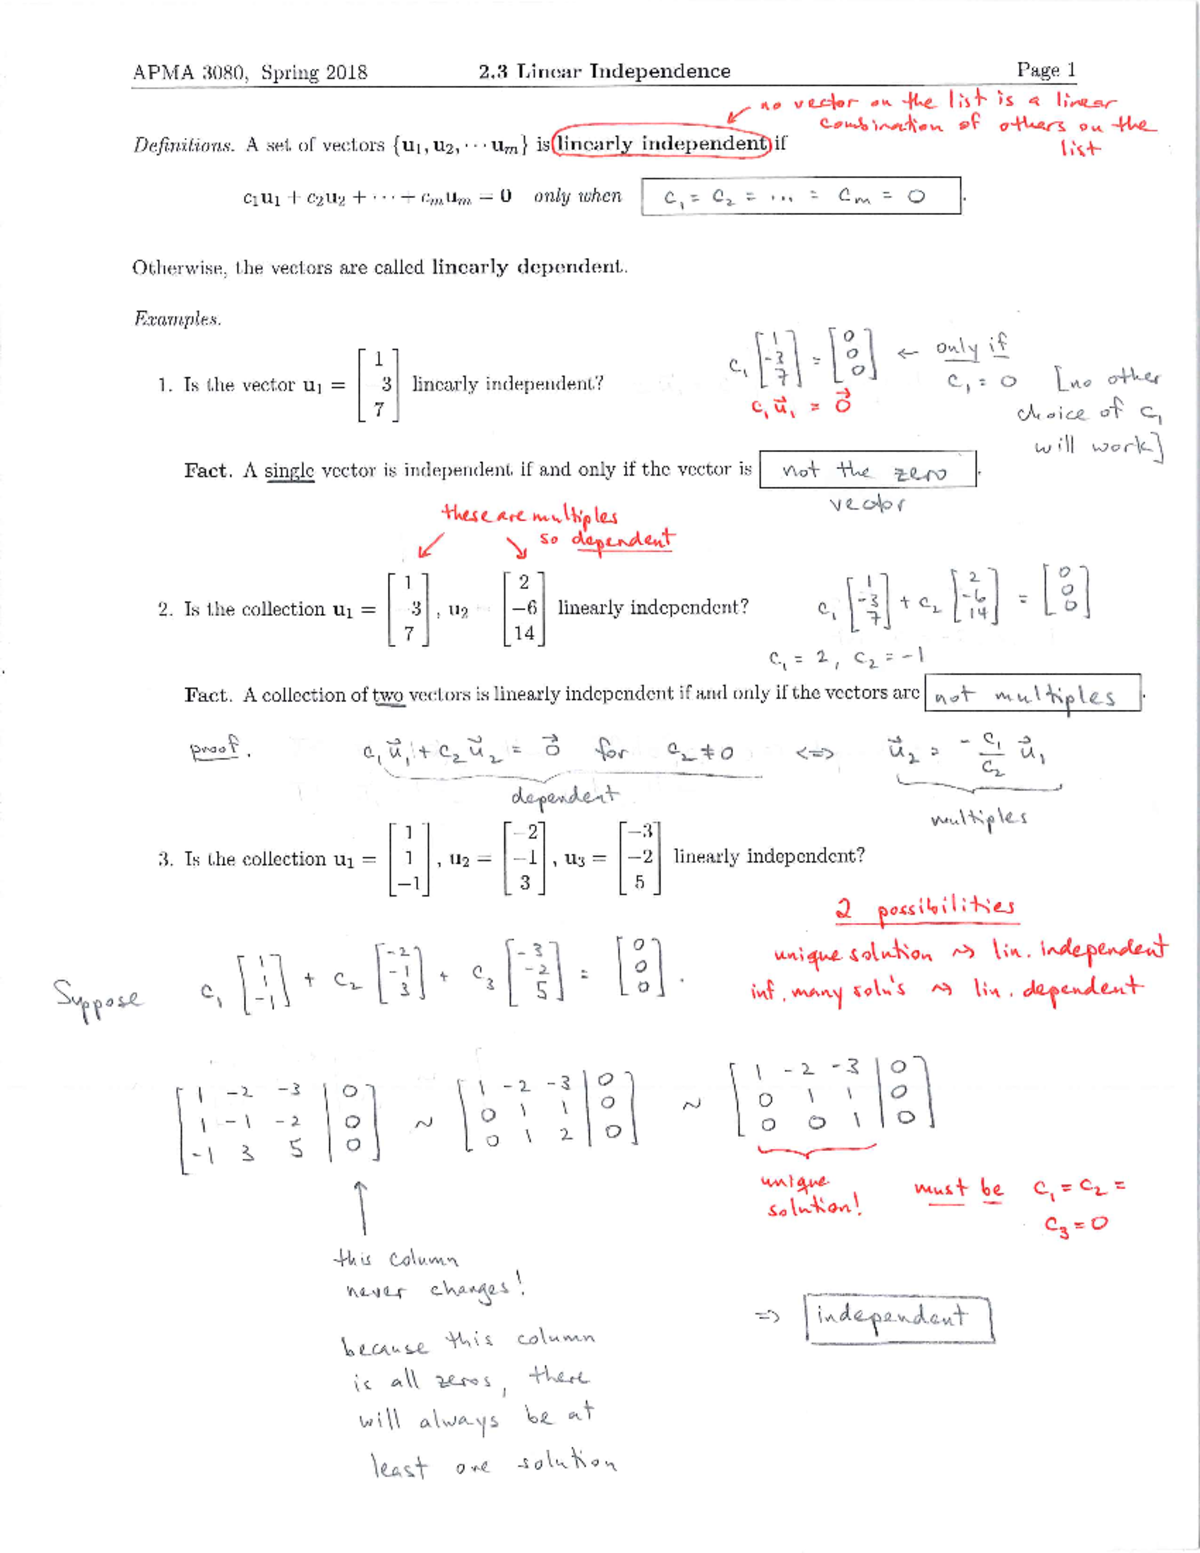 APMA 3080, Spring 2018 2.3 Linear Independence Page 1
no vector on the list is a linear
combination of others on the
list
Definitions. A set of vectors {u1, u2, ··· um} is linearly independent if
c1u1 + c2u2 + ··· + cmum = 0 only when c1 = c2 = ... = cm = 0 .
Otherwise, the vectors are called linearly dependent.
Examples.
1. Is the vector u1 = [1 3 7] linearly independent?
c1 [1 -3 7] = [0 0 0] ← only if
c1 = 0 [no other
choice of c1
will work]
c1 u⃗1 = 0⃗
Fact. A single vector is independent if and only if the vector is not the zero .
vector
these are multiples
so dependent
2. Is the collection u1 = [1 3 7], u2 [2 −6 14] linearly independent?
c1 [1 -3 7] + c2 [2 -6 14] = [0 0 0]
c1 = 2, c2 = -1
Fact. A collection of two vectors is linearly independent if and only if the vectors are not multiples .
proof. c1 u⃗1 + c2 u⃗2 = 0⃗ for c2 ≠ 0 <=> u⃗2 = - c1/c2 u⃗1
dependent
multiples
3. Is the collection u1 = [1 1 −1], u2 = [−2 −1 3], u3 = [−3 −2 5] linearly independent?
2 possibilities
unique solution ⇝ lin. independent
inf. many soln's ⇝ lin. dependent
Suppose c1 [1 1 -1] + c2 [-2 -1 3] + c3 [-3 -2 5] = [0 0 0].
[1 -2 -3 | 0] [1 -2 -3 | 0] [1 -2 -3 | 0]
[1 -1 -2 | 0] ~ [0 1 1 | 0] ~ [0 1 1 | 0]
[-1 3 5 | 0] [0 1 2 | 0] [0 0 1 | 0]
unique
solution!
must be c1 = c2 =
c3 = 0
↑
this column
never changes!
=> independent
because this column
is all zeros, there
will always be at
least one solution